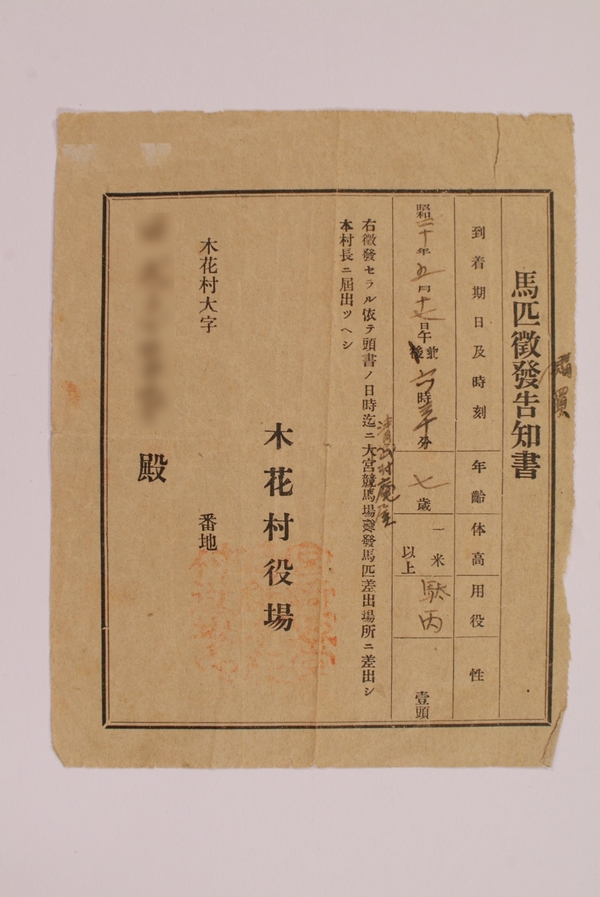 馬匹徴發告知書
購買
到着期日及時刻
年齡
体高
用役
性
昭和二十年五月十七日午後六時三十分
七歳
一米以上
駄丙
壹頭
右徴發セラル依テ頭書ノ日時迄ニ大宮競馬場徴發馬匹差出場所ニ差出シ
清武村
本村長ニ屆出ツヘシ
木花村役場
木花村大字
番地
殿